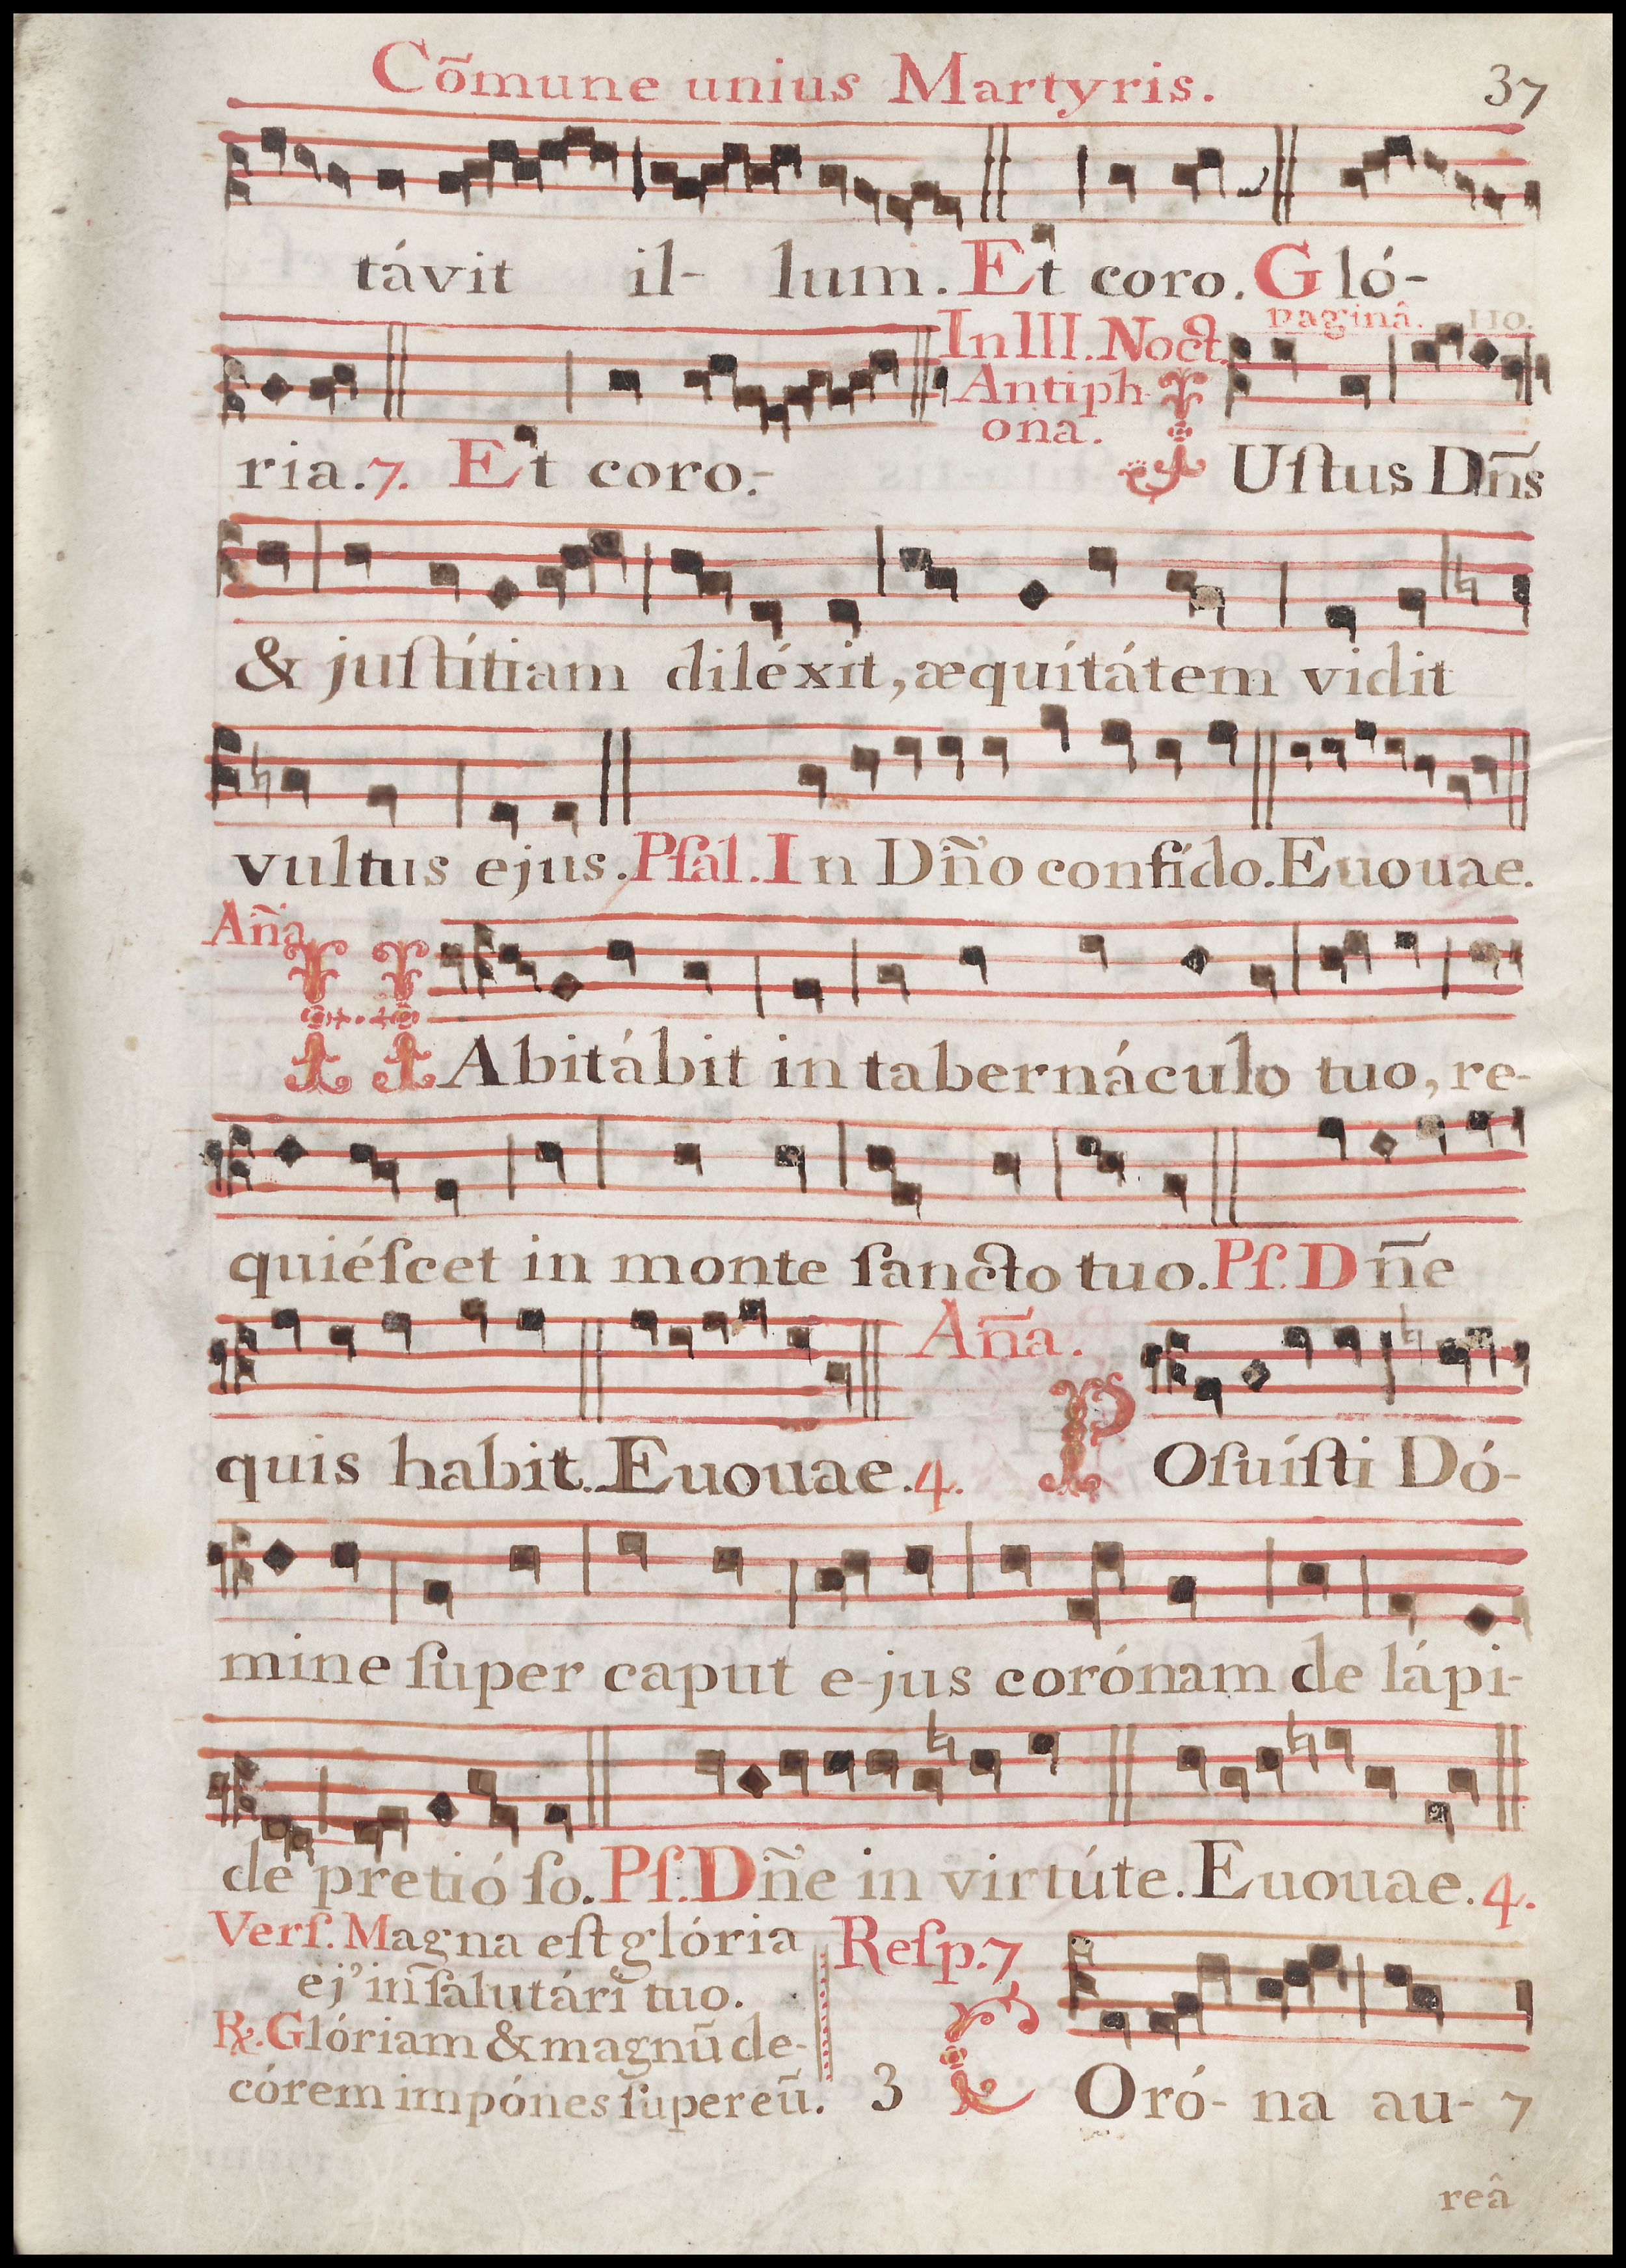 Cõmune unius Martyris. 37
távit il- lum. Et coro. Gló-
paginâ. 110.
In III. Noct.
Antiph
ona.
ria. 7. Et coro.- JUſtus Dñs
& juſtítiam diléxit, æquitátem vidit
vultus ejus. Pſal. In Dño confído. Euouae.
Aña
HAbitábit in tabernáculo tuo, re-
quiéſcet in monte ſancto tuo. Pſ. Dñe
Aña.
quis habit. Euouae. 4. POſuíſti Dó-
mine ſuper caput e-jus corónam de lápi-
de pretió ſo. Pſ. Dñe in virtúte. Euouae. 4.
Verſ. Magna eſt glória
ej' in ſalutári tuo.
℟. Glóriam & magnũ de-
córem impónes ſuper eũ.
Reſp. 7
3 COró- na au- 7
reâ